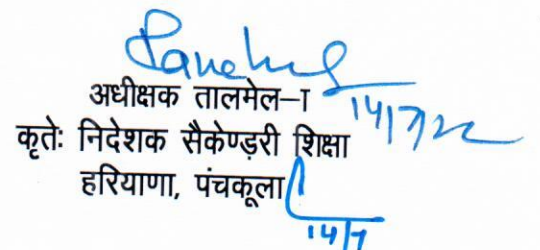 अधीक्षक तालमेल–I
14/7/22
कृतेः निदेशक सैकेण्ड़री शिक्षा
हरियाणा, पंचकूला
14/7